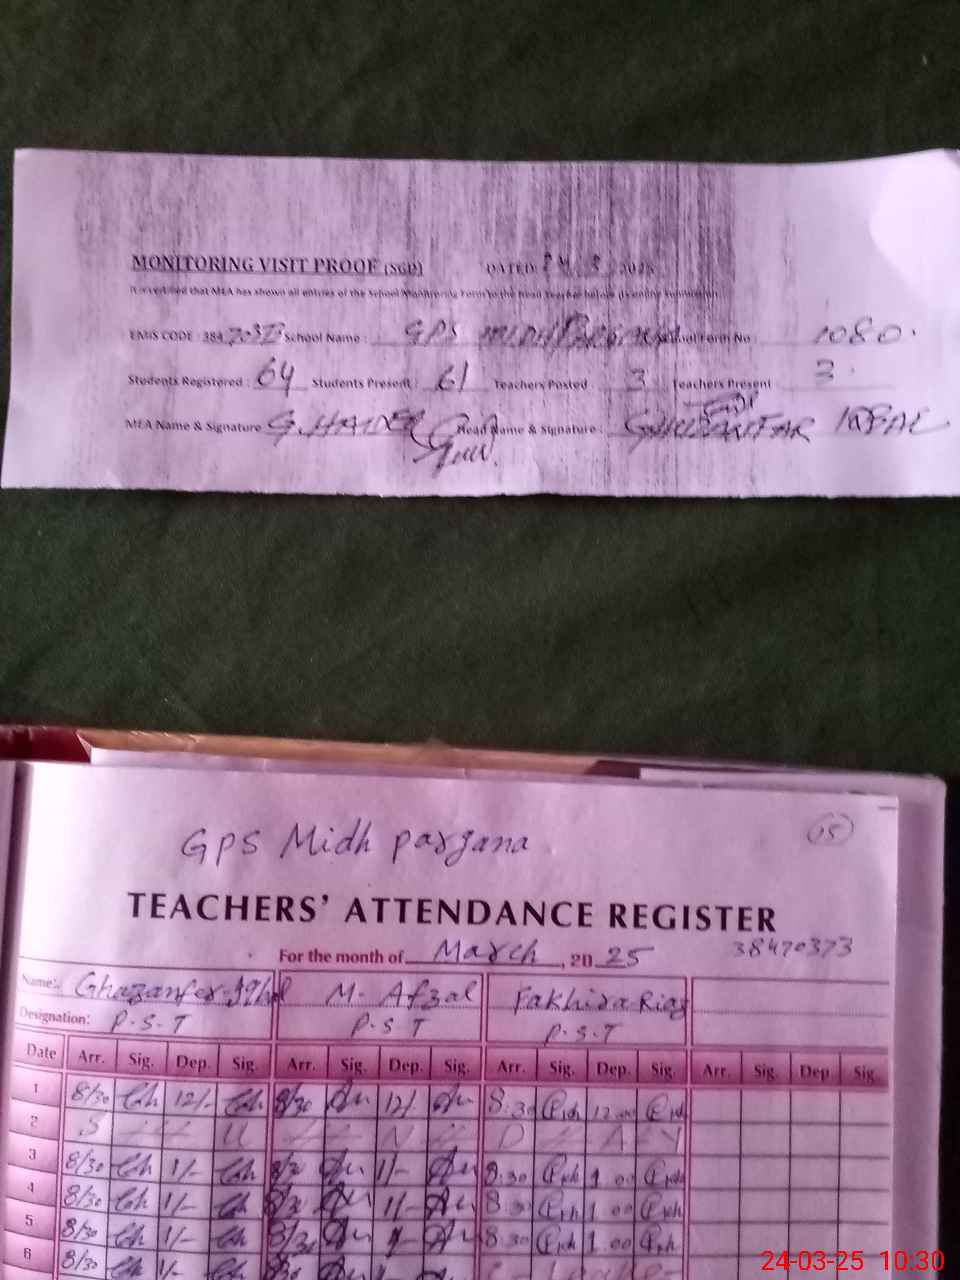 MONITORING VISIT PROOF (SGD) DATED: 24 3 2025
It is certified that MEA has shown all entries of the School Monitoring Form to the Head Teacher before its online submission.
EMIS CODE : 384 School Name : GPS MIDH PARGANA School Form No : 1080.
Students Registered : 64 Students Present : 61 Teachers Posted 3 Teachers Present 3.
MEA Name & Signature G.HAIDER Head Name & Signature : GHUZANFAR IQBAL
GPS Midh pargana 05
TEACHERS' ATTENDANCE REGISTER
For the month of March, 2025 38470373
Name:- Ghazanfer Iqbal M. Afzal Fakhira Riaz
Designation: P.S.T P.S.T P.S.T
Date Arr. Sig. Dep. Sig. Arr. Sig. Dep. Sig. Arr. Sig. Dep. Sig. Arr. Sig. Dep Sig.
1 8/30 12/- 8/30 12/- 8:30 12.00
2 S U N D A Y
3 8/30 1/- 8/30 1/- 8:30 1.00
4 8/30 1/- 8/30 1/- 8:30 1.00
5 8/30 1/- 8/30 8:30 1.00
6 8/30 1/- 8/30 1/-
24-03-25 10:30